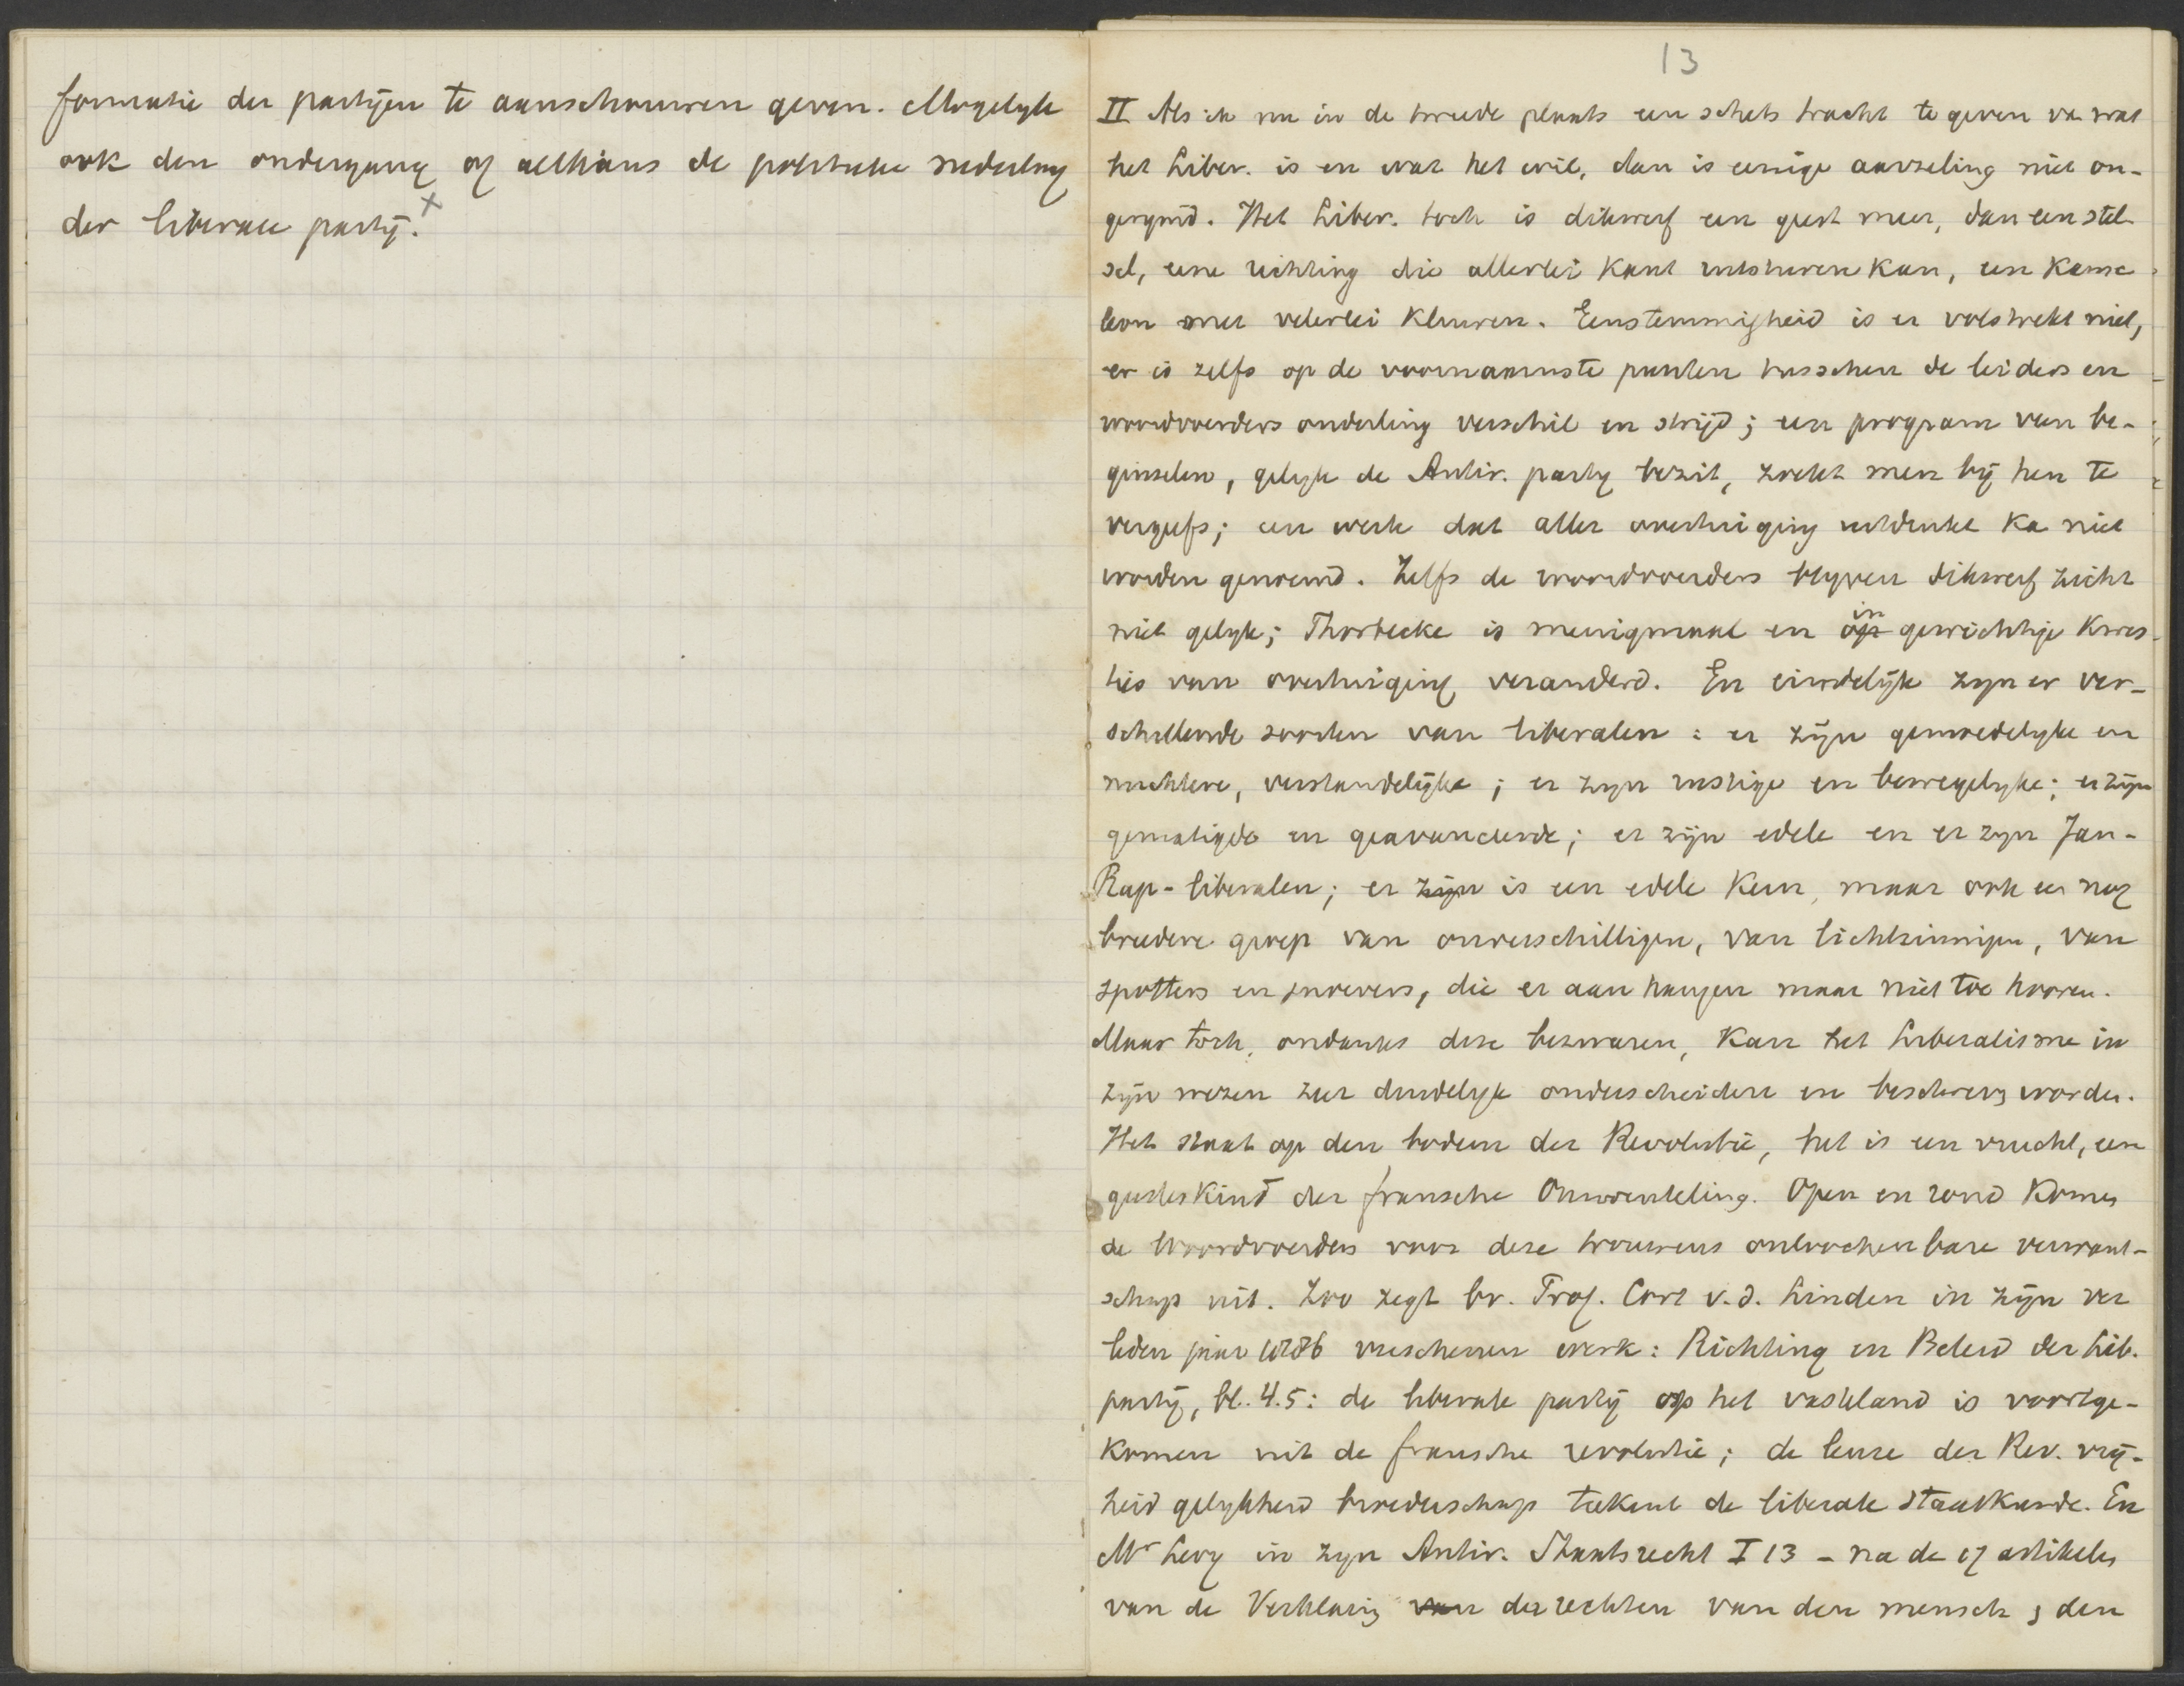 formatie der partijen te aanschouwen geven. Mogelyk
ook den ondergang of althans de politieke nederlag
der liberale party.x
13
II Als ik nu in de tweede plaats een schets tracht te geven va wat
het Liber. is en wat het wil, dan is eenige aarzeling niet on-
gerymd. Het Liber. toch is dikwerf een geest meer, dan een stel
sel, eene richting die allerlei kant uitsturen kan, een kame
leon met velerlei kleuren. Eenstemmigheid is er volstrekt niet,
er is zelfs op de voornaamste punten tusschen de leiders en
woordvoerders onderling verschil en strijd; een program van be-
ginselen, gelyk de Antir. party bezit, zoekt men bij hen te
vergeefs; een werk dat aller overtuiging uitdrukt ka niet
worden genoemd. Zelfs de woordvoerders blyven dikwerf zich
niet gelyk; Thorbecke is menigmaal en op in gewichtige kwes-
ties van overtuiging veranderd. En eindelijk zyn er ver-
schillende soorten van liberalen: er zijn gemoedelyke en
nuchtere, verstandelijke; er zyn rustige en bewegelyke; er zijn
gematigde en geavanceerde; er zijn edele en er zyn Jan-
Rap-liberalen; er zijn is een edele kern, maar ook een nog
breedere groep van onverschilligen, van lichtzinnigen, van
spotters en snoevers, die er aan hangen maar niet toe hooren.
Maar toch, ondanks deze bezwaren, kan het Liberalisme in
zijn wezen zeer duidelyk onderscheiden en beschreven worden.
Het staat op den bodem der Revolutie, het is een vrucht, een
geesteskind der fransche Omwenteling. Open en rond komen
de woordvoerders voor deze trouwens onloochenbare verwant-
schap uit. Zoo zegt bv. Prof. Cort v.d. Linden in zijn ver
leden jaar 1886 verschenen werk: Richting en Beleid der Lib.
partij, bl. 4.5: de liberale partij op het vasteland is voortge-
komen uit de fransche revolutie; de leuze der Rev. vrij-
heid gelykheid broederschap teekent de liberale staatkunde. En
Mr Levy in zyn Antir. Staatsrecht I 13 - na de 17 artikelen
van de Verklaring van der rechten van den mensch, den